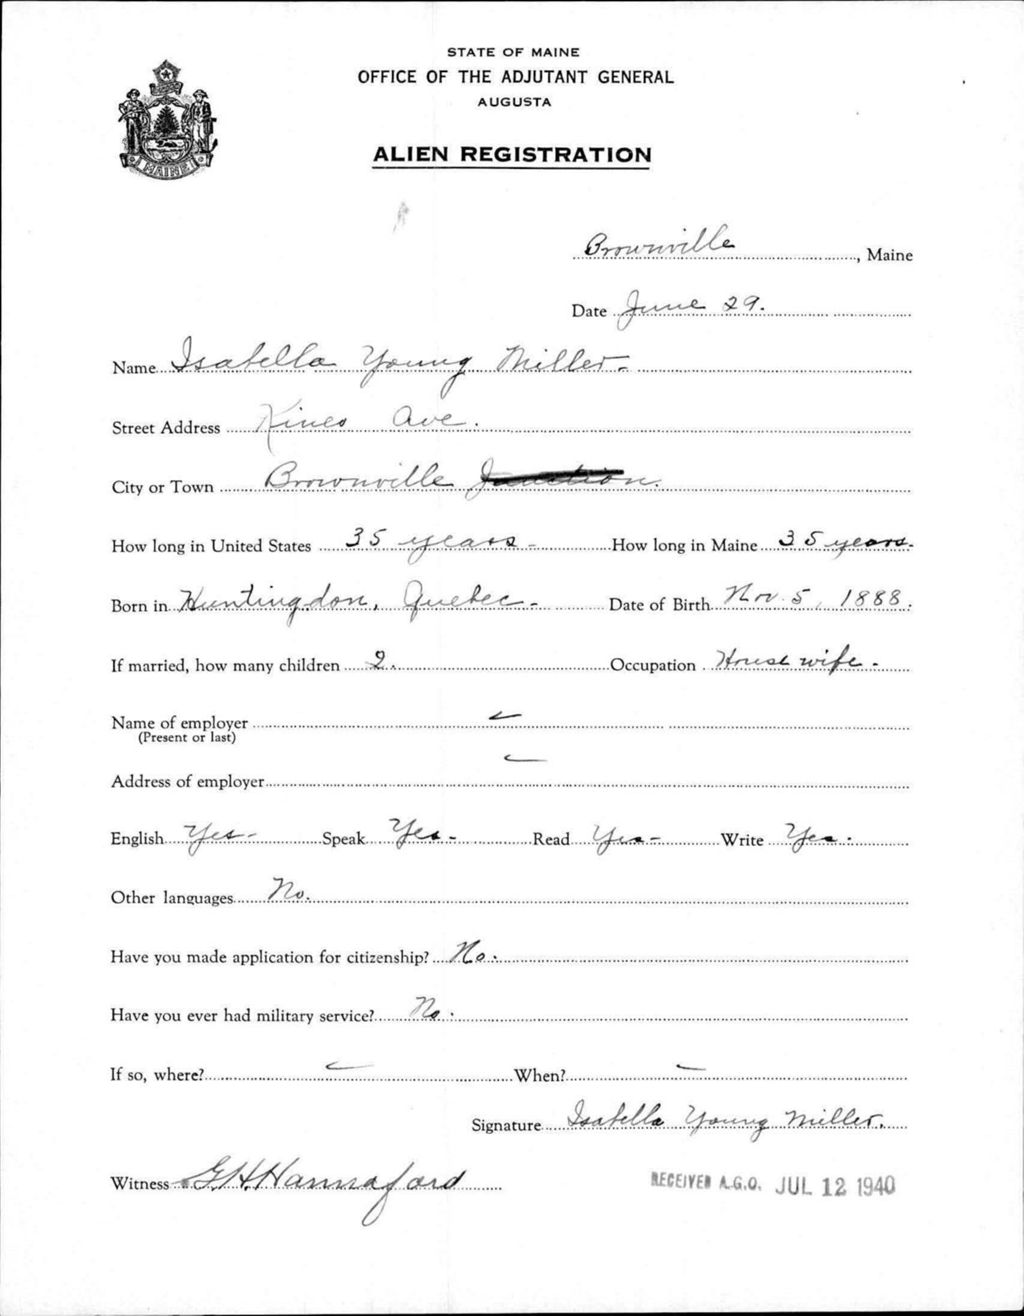 STATE OF MAINE
OFFICE OF THE ADJUTANT GENERAL
AUGUSTA
ALIEN REGISTRATION
MAINE
Brownville, Maine
Date June 29.
Name Isabella Young Miller
Street Address Kineo Ave.
City or Town Brownville Junction.
How long in United States 35 years How long in Maine 35 years
Born in Huntingdon, Quebec Date of Birth Nov 5, 1888.
If married, how many children 2. Occupation Housewife
Name of employer
(Present or last)
Address of employer
English Yes Speak Yes Read Yes Write Yes.
Other languages No.
Have you made application for citizenship? No.
Have you ever had military service? No.
If so, where? When?
Signature Isabella Young Miller.
Witness G H Hannaford
RECEIVED A.G.O. JUL 12 1940